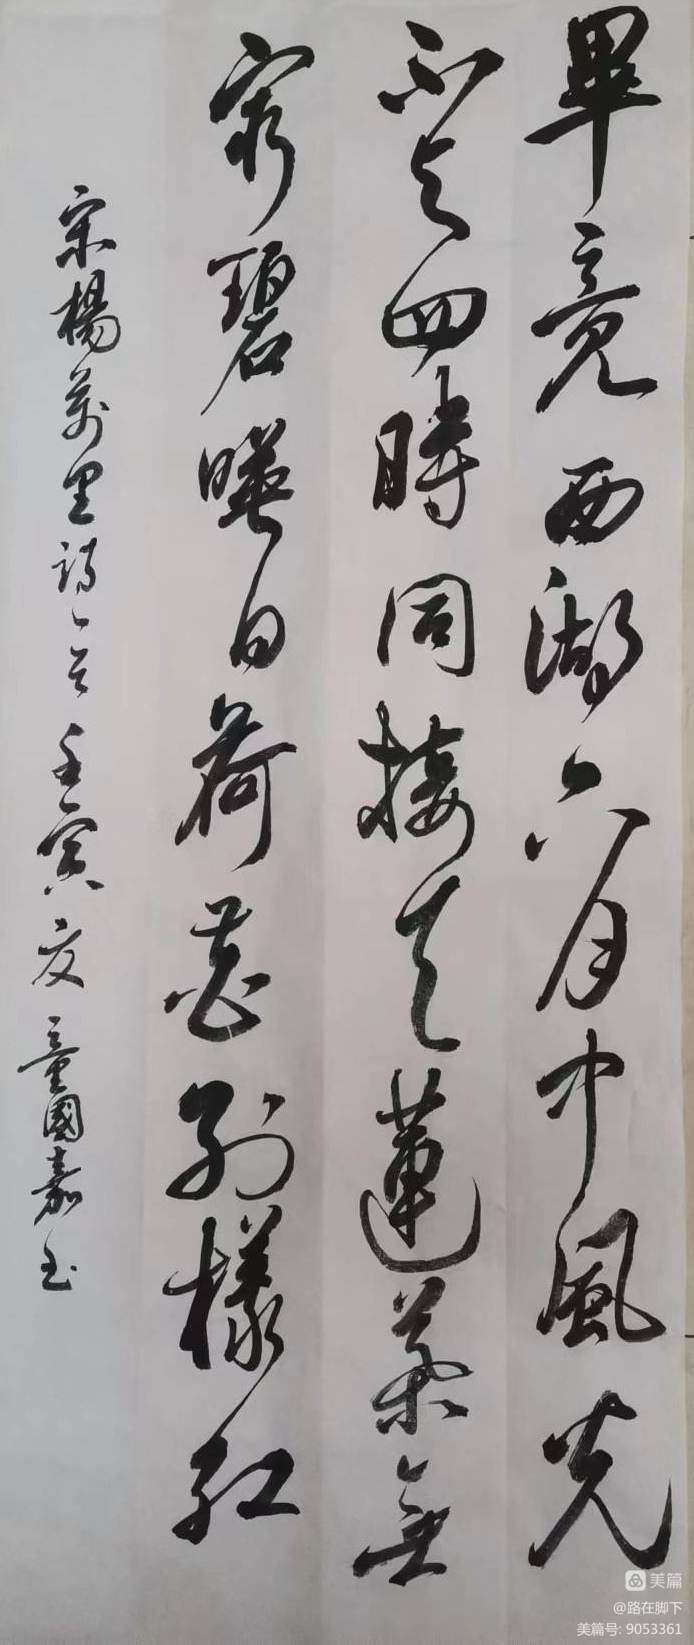 畢竟西湖六月中風光
不与四時同接天蓮葉無
窮碧暎日荷花别樣紅
宋楊萬里詩一首壬寅夏童國嘉书
美篇
@路在脚下
美篇号: 9053361